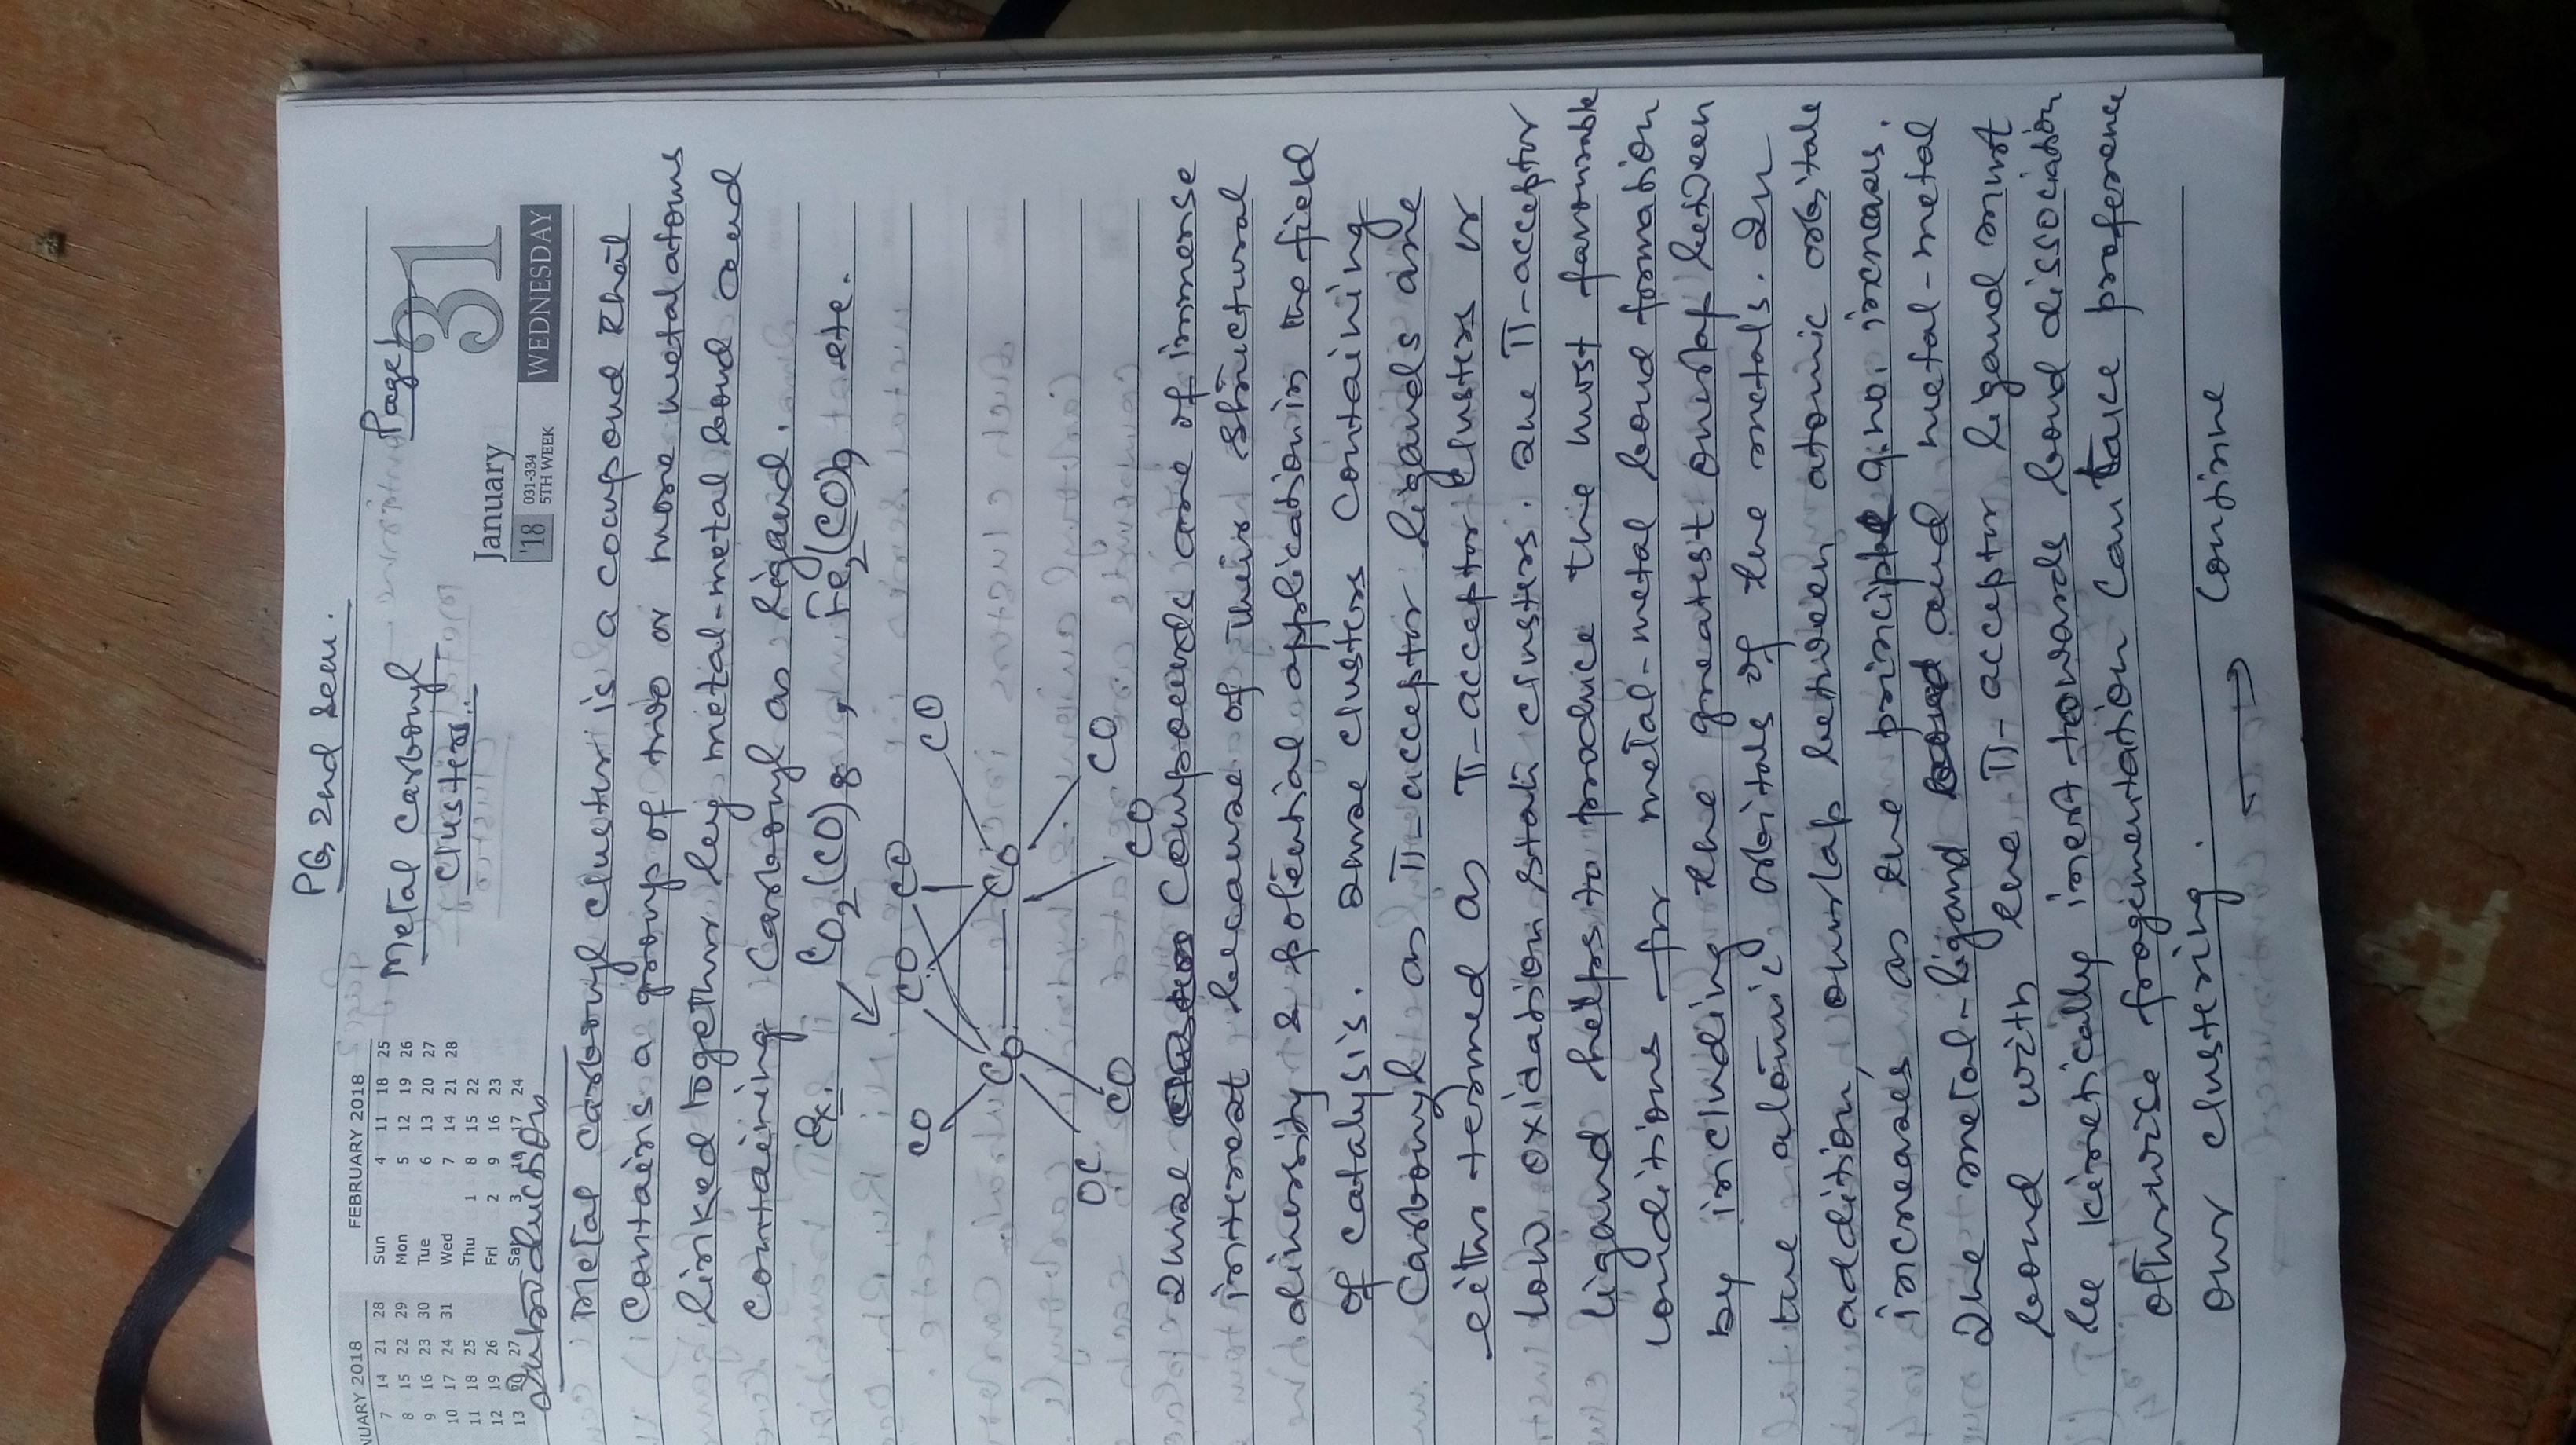 PG 2nd Sem.
Page 1
FEBRUARY 2018
Sun 4 11 18 25
Mon 5 12 19 26
Tue 6 13 20 27
Wed 7 14 21 28
Thu 1 8 15 22
Fri 2 9 16 23
Sat 3 10 17 24
NUARY 2018
7 14 21 28
8 15 22 29
9 16 23 30
10 17 24 31
11 18 25
12 19 26
13 20 27
Metal Carbonyl
Clusters.
January
31
'18
031-334
5TH WEEK
WEDNESDAY
Introduction
Metal Carbonyl cluster is a compound that
contains a group of two or more metal atoms
linked together by metal-metal bond and
containing Carbonyl as ligand.
Ex. Co2(CO)8, Fe2(CO)9 etc.
CO CO CO CO
Co Co
OC CO CO CO
These Compounds are of immense
interest because of their structural
diversity & potential application in the field
of catalysis. These clusters containing
Carbonyl as π-acceptor ligands are
either termed as π-acceptor clusters or
low oxidation state clusters. The π-acceptor
ligand helps to produce the most favourable
conditions for metal-metal bond formation
by including the greatest overlap between
the atomic orbitals of the metals. In
addition, overlap between atomic orbitals
increases as the principle q. no. increases.
The metal-ligand and metal-metal
bond with the π-acceptor ligand must
be kinetically inert towards bond dissociation
otherwise fragmentation can take preference
over clustering.
Continue